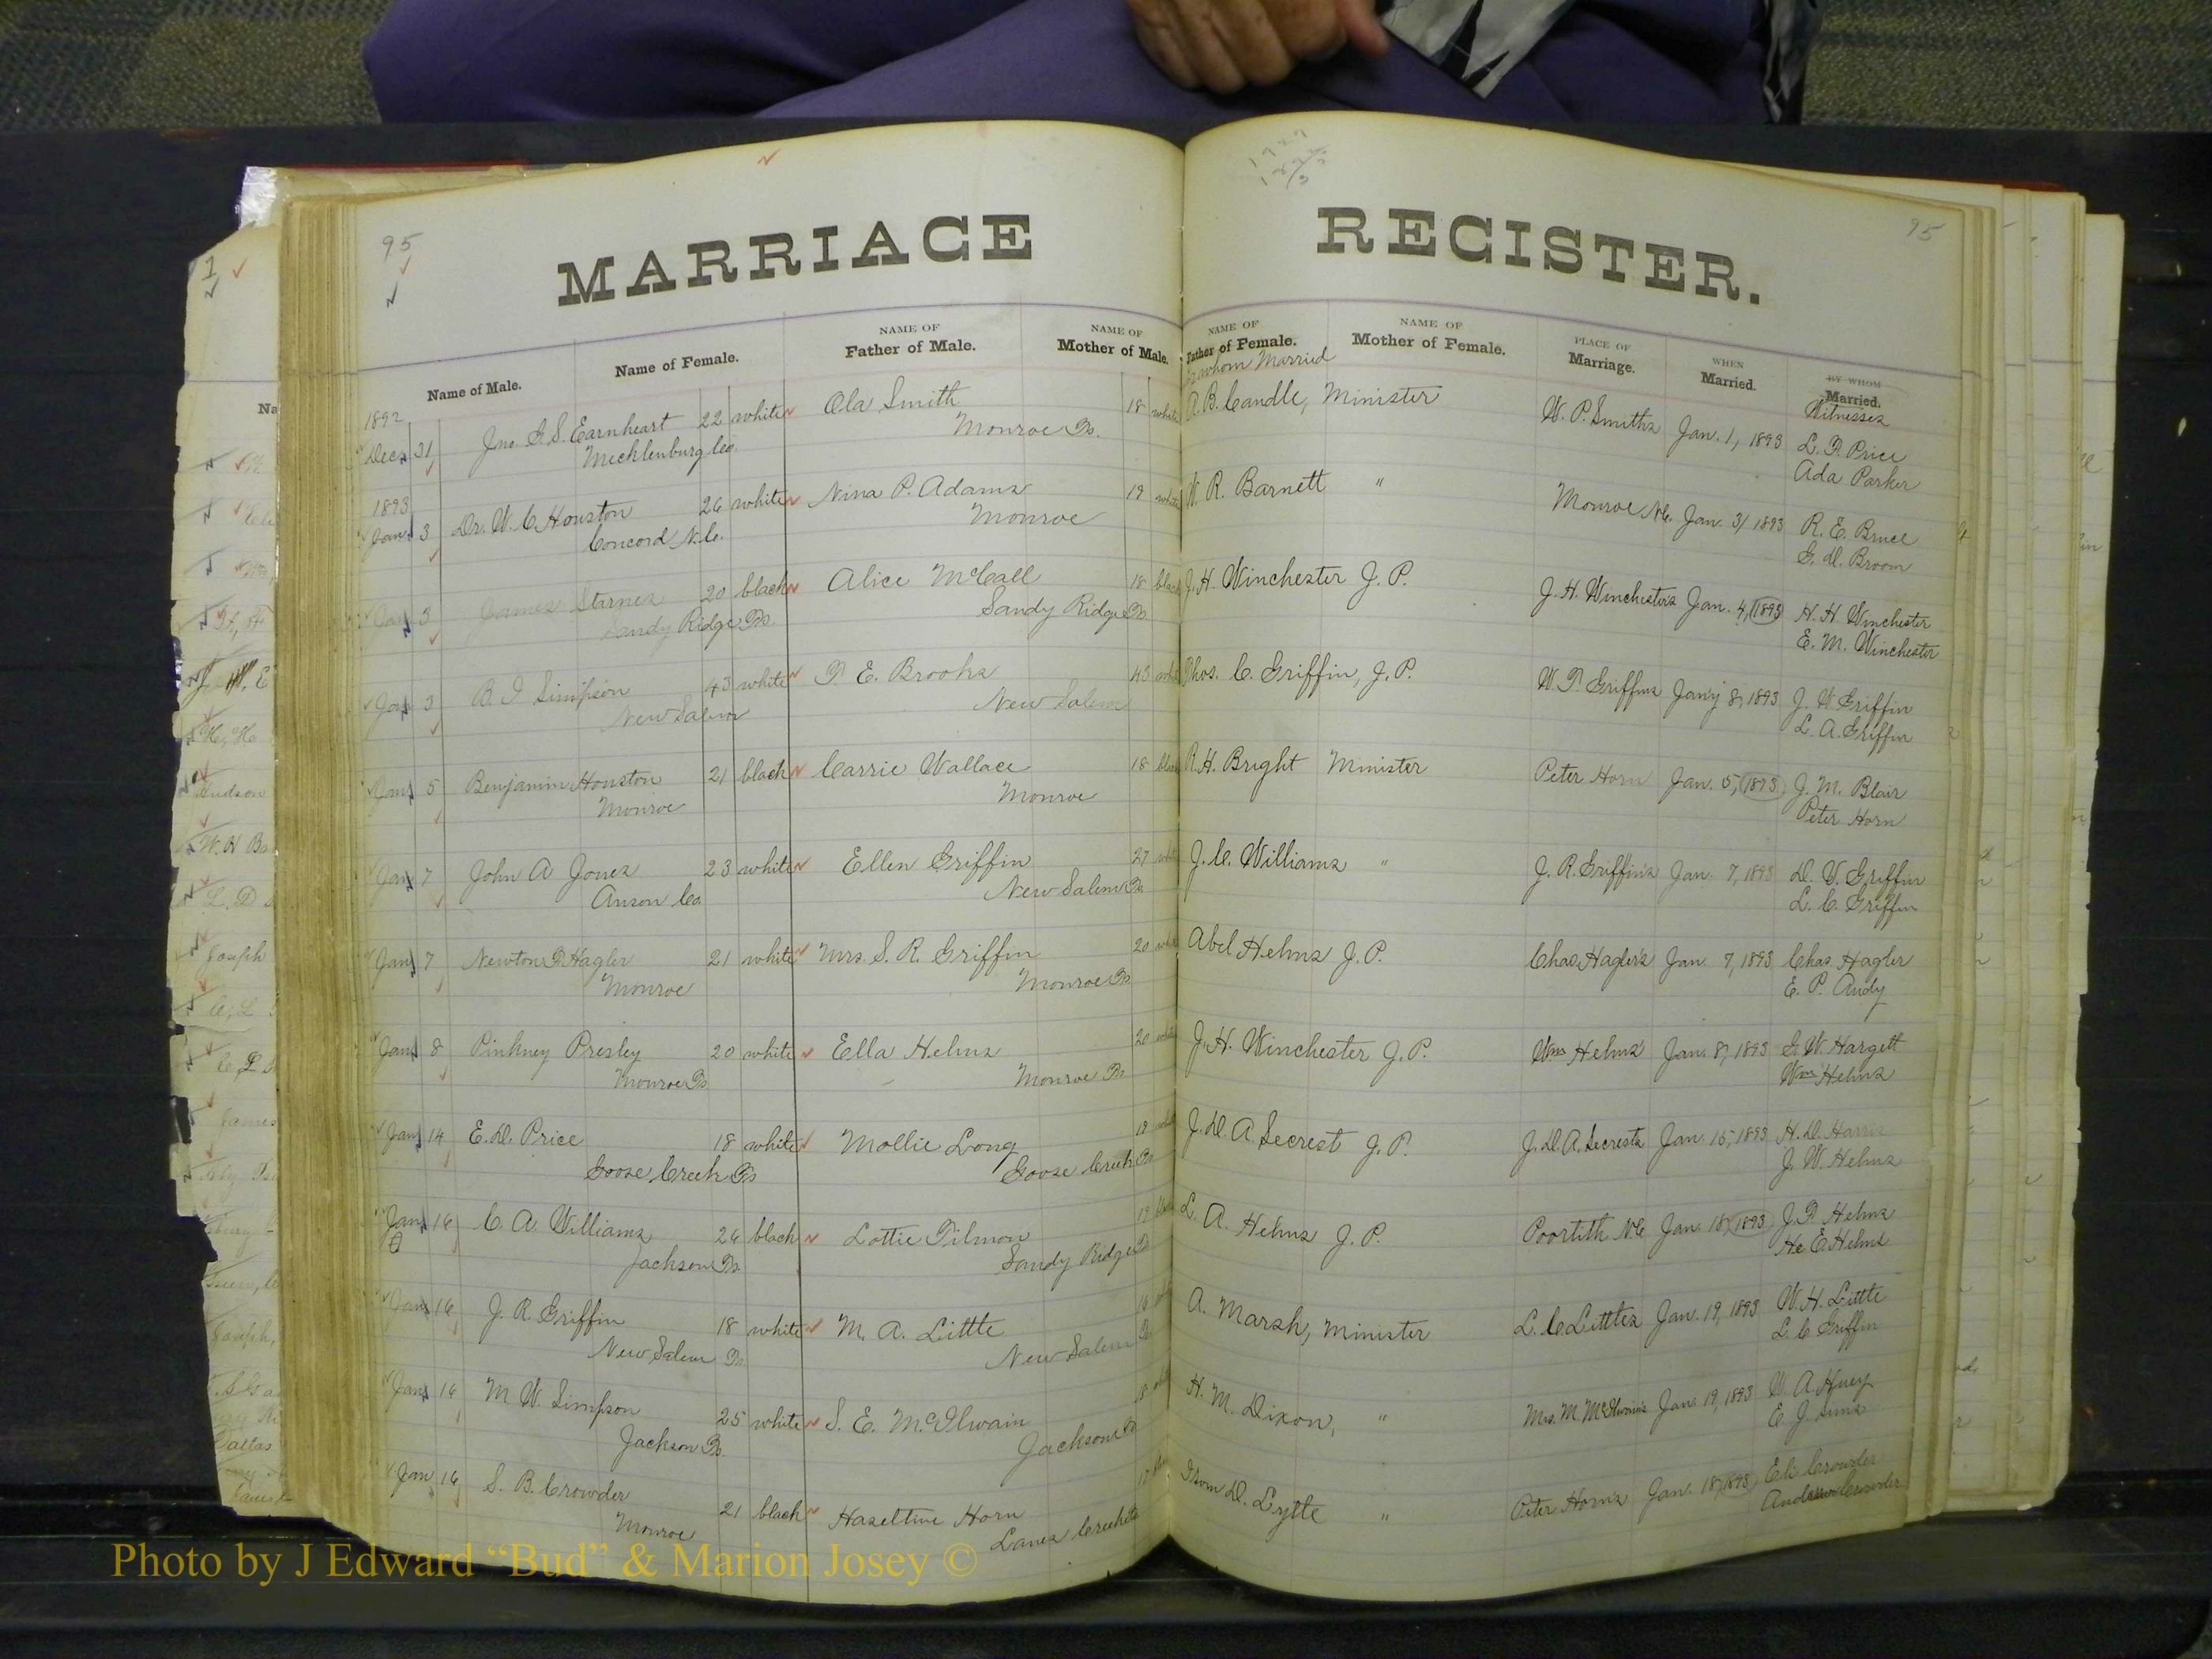 95
MARRIAGE REGISTER.
95
Name of Male.
Name of Female.
NAME OF
Father of Male.
NAME OF
Mother of Male.
NAME OF
Father of Female.
NAME OF
Mother of Female.
PLACE OF
Marriage.
WHEN
Married.
BY WHOM
Married.
By whom Married
Witnesses
1892
Dec 31 Jno. G. S. Earnheart 22 white Ola Smith 18 white A. B. Caudle, Minister W. P. Smiths Jan. 1, 1893 L. P. Price
Mecklenburg Co. Monroe Ts. Ada Parker
1893
Jany 3 Dr. W. C. Houston 26 white Nina P. Adams 19 white W. R. Barnett " Monroe N.C. Jan. 3, 1893 R. E. Bruce
Concord N.C. Monroe G. D. Broom
Jany 3 James Starnes 20 black Alice McCall 18 black J. H. Winchester J. P. J. H. Winchesters Jan. 4, 1893 H. H. Winchester
Sandy Ridge Ts. Sandy Ridge Ts. E. M. Winchester
Jany 3 B. I Simpson 43 white T. E. Brooks 43 white Thos. C. Griffin, J. P. W. T. Griffins Jany 8, 1893 J. W Griffin
New Salem New Salem L. A. Griffin
Jany 5 Benjamin Houston 21 black Carrie Wallace 18 black R. H. Bright Minister Peter Horn Jan. 5, 1893 J. M. Blair
Monroe Monroe Peter Horn
Jany 7 John A Jones 23 white Ellen Griffin 27 white J. C. Williams " J. R. Griffin's Jan. 7, 1893 D. V. Griffin
Anson Co. New Salem Ts. L. C. Griffin
Jany 7 Newton T. Hagler 21 white Mrs. S. R. Griffin 20 white Abel Helms J. P. Chas. Hagler's Jan. 7, 1893 Chas Hagler
Monroe Monroe Ts. E. P. Andy
Jany 8 Pinkney Presley 20 white Ella Helms 20 white J. H. Winchester J. P. Wm Helms' Jan. 8, 1893 G. W. Hargett
Monroe Ts. Monroe Ts. Wm Helms
Jany 14 E. D. Price 18 white Mollie Long 18 white J. D. A. Secrest J. P. J. D. A. Secrests Jan. 15, 1893 H. D. Harris
Goose Creek Ts. Goose Creek Ts. J. W. Helms
Jany 16 C. A. Williams 26 black Lottie Tilmon 19 black L. A. Helms J. P. Poortith N.C Jan. 18, 1893 J. P. Helms
Jackson Ts. Sandy Ridge Ts. H. E. Helms
Jany 16 J. R. Griffin 18 white M. A. Little 16 white A. Marsh, Minister L. C Littles Jan. 19, 1893 W. H. Little
New Salem Ts. New Salem Ts. L. C Griffin
Jany 16 M. W. Simpson 25 white S. E. McIlwain 18 white H. M. Dixon, " Mrs. M. McIlwains Jan. 19, 1893 W. A. Huey
Jackson Ts. Jackson Ts. E. J. Sims
Jany 16 S. B. Crowder 21 black Hazeltine Horn 17 black Isom D. Lytle " Peter Horns Jan. 18, 1893 Eli Crowder
Monroe Lanes Creek Ts. Andrew Crowder
Photo by J Edward “Bud” & Marion Josey ©